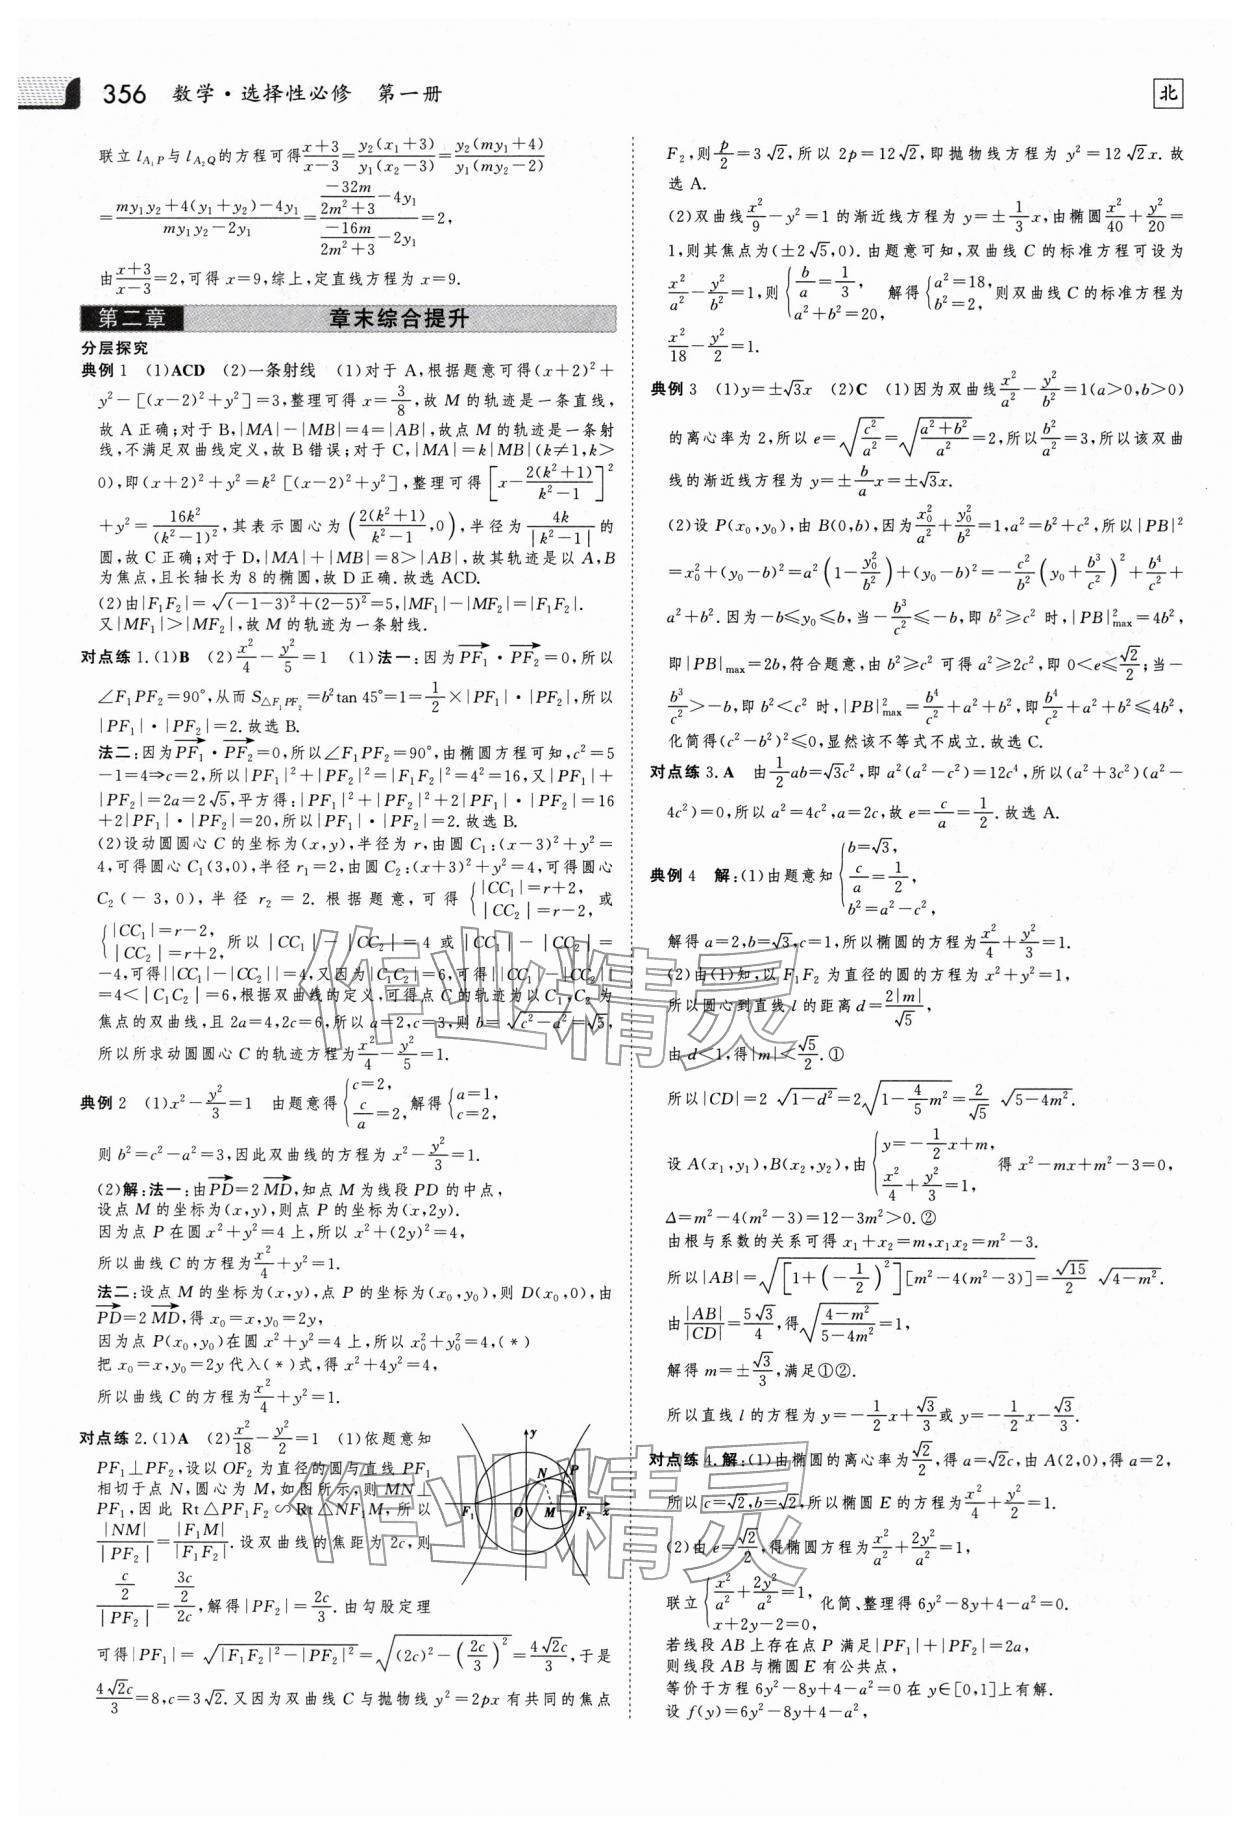 356 数学·选择性必修 第一册
北
联立 l_{A₁P} 与 l_{A₂Q} 的方程可得 (x+3)/(x−3) = y₂(x₁+3)/[y₁(x₂−3)] = y₂(my₁+4)/[y₁(my₂−2)]
= [my₁y₂+4(y₁+y₂)−4y₁]/(my₁y₂−2y₁) = [−32m/(2m²+3) −4y₁]/[−16m/(2m²+3) −2y₁] = 2,
由 (x+3)/(x−3) = 2,可得 x=9,综上,定直线方程为 x=9.
第二章 章末综合提升
分层探究
典例 1 (1)ACD (2)一条射线 (1)对于 A,根据题意可得(x+2)²+
y²−[(x−2)²+y²]=3,整理可得 x=3/8,故 M 的轨迹是一条直线,
故 A 正确;对于 B,|MA|−|MB|=4=|AB|,故点 M 的轨迹是一条射
线,不满足双曲线定义,故 B 错误;对于 C,|MA|=k|MB|(k≠1,k>
0),即(x+2)²+y²=k²[(x−2)²+y²],整理可得 [x−2(k²+1)/(k²−1)]²
+y²=16k²/(k²−1)²,其表示圆心为 (2(k²+1)/(k²−1),0),半径为 4k/|k²−1| 的
圆,故 C 正确;对于 D,|MA|+|MB|=8>|AB|,故其轨迹是以 A,B
为焦点,且长轴长为 8 的椭圆,故 D 正确.故选 ACD.
(2)由|F₁F₂|=√((−1−3)²+(2−5)²)=5,|MF₁|−|MF₂|=|F₁F₂|.
又|MF₁|>|MF₂|,故 M 的轨迹为一条射线.
对点练 1.(1)B (2)x²/4−y²/5=1 (1)法一:因为 PF₁→·PF₂→=0,所以
∠F₁PF₂=90°,从而 S△F₁PF₂=b²tan 45°=1=1/2×|PF₁|·|PF₂|,所以
|PF₁|·|PF₂|=2.故选 B.
法二:因为 PF₁→·PF₂→=0,所以∠F₁PF₂=90°,由椭圆方程可知,c²=5
−1=4⇒c=2,所以|PF₁|²+|PF₂|²=|F₁F₂|²=4²=16,又|PF₁|+
|PF₂|=2a=2√5,平方得:|PF₁|²+|PF₂|²+2|PF₁|·|PF₂|=16
+2|PF₁|·|PF₂|=20,所以|PF₁|·|PF₂|=2.故选 B.
(2)设动圆圆心 C 的坐标为(x,y),半径为 r,由圆 C₁:(x−3)²+y²=
4,可得圆心 C₁(3,0),半径 r₁=2,由圆 C₂:(x+3)²+y²=4,可得圆心
C₂(−3,0),半径 r₂=2.根据题意,可得 {|CC₁|=r+2, |CC₂|=r−2, 或
{|CC₁|=r−2, |CC₂|=r+2, 所以|CC₁|−|CC₂|=4 或|CC₁|−|CC₂|=
−4,可得||CC₁|−|CC₂||=4,又因为|C₁C₂|=6,可得||CC₁|−|CC₂||
=4<|C₁C₂|=6,根据双曲线的定义,可得点 C 的轨迹为以 C₁,C₂ 为
焦点的双曲线,且 2a=4,2c=6,所以 a=2,c=3,则 b=√(c²−a²)=√5,
所以所求动圆圆心 C 的轨迹方程为 x²/4−y²/5=1.
典例 2 (1)x²−y²/3=1 由题意得 {c=2, c/a=2, 解得 {a=1, c=2,
则 b²=c²−a²=3,因此双曲线的方程为 x²−y²/3=1.
(2)解:法一:由 PD→=2MD→,知点 M 为线段 PD 的中点,
设点 M 的坐标为(x,y),则点 P 的坐标为(x,2y).
因为点 P 在圆 x²+y²=4 上,所以 x²+(2y)²=4,
所以曲线 C 的方程为 x²/4+y²=1.
法二:设点 M 的坐标为(x,y),点 P 的坐标为(x₀,y₀),则 D(x₀,0),由
PD→=2MD→,得 x₀=x,y₀=2y,
因为点 P(x₀,y₀)在圆 x²+y²=4 上,所以 x₀²+y₀²=4,(*)
把 x₀=x,y₀=2y 代入(*)式,得 x²+4y²=4,
所以曲线 C 的方程为 x²/4+y²=1.
对点练 2.(1)A (2)x²/18−y²/2=1 (1)依题意知
PF₁⊥PF₂,设以 OF₂ 为直径的圆与直线 PF₁
相切于点 N,圆心为 M,如图所示,则 MN⊥
PF₁,因此 Rt△PF₁F₂∽Rt△NF₁M,所以
|NM|/|PF₂|=|F₁M|/|F₁F₂|.设双曲线的焦距为 2c,则
(c/2)/|PF₂|=(3c/2)/2c,解得|PF₂|=2c/3.由勾股定理
y N P F₁ O M F₂ x
可得|PF₁|=√(|F₁F₂|²−|PF₂|²)=√((2c)²−(2c/3)²)=4√2c/3,于是
4√2c/3=8,c=3√2.又因为双曲线 C 与抛物线 y²=2px 有共同的焦点
F₂,则 p/2=3√2,所以 2p=12√2,即抛物线方程为 y²=12√2x.故
选 A.
(2)双曲线 x²/9−y²=1 的渐近线方程为 y=±1/3x,由椭圆 x²/40+y²/20=
1,则其焦点为(±2√5,0).由题意可知,双曲线 C 的标准方程可设为
x²/a²−y²/b²=1,则 {b/a=1/3, a²+b²=20, 解得 {a²=18, b²=2, 则双曲线 C 的标准方程为
x²/18−y²/2=1.
典例 3 (1)y=±√3x (2)C (1)因为双曲线 x²/a²−y²/b²=1(a>0,b>0)
的离心率为 2,所以 e=√(c²/a²)=√((a²+b²)/a²)=2,所以 b²/a²=3,所以该双曲
线的渐近线方程为 y=±b/a x=±√3x.
(2)设 P(x₀,y₀),由 B(0,b),因为 x₀²/a²+y₀²/b²=1,a²=b²+c²,所以|PB|²
=x₀²+(y₀−b)²=a²(1−y₀²/b²)+(y₀−b)²=−c²/b²(y₀+b³/c²)²+b⁴/c²+
a²+b².因为−b≤y₀≤b,当−b³/c²≤−b,即 b²≥c² 时,|PB|²max=4b²,
即|PB|max=2b,符合题意,由 b²≥c² 可得 a²≥2c²,即 0<e≤√2/2;当−
b³/c²>−b,即 b²<c² 时,|PB|²max=b⁴/c²+a²+b²,即 b⁴/c²+a²+b²≤4b²,
化简得(c²−b²)²≤0,显然该不等式不成立.故选 C.
对点练 3.A 由 1/2ab=√3c²,即 a²(a²−c²)=12c⁴,所以(a²+3c²)(a²−
4c²)=0,所以 a²=4c²,a=2c,故 e=c/a=1/2.故选 A.
典例 4 解:(1)由题意知 {b=√3, c/a=1/2, b²=a²−c²,
解得 a=2,b=√3,c=1,所以椭圆的方程为 x²/4+y²/3=1.
(2)由(1)知,以 F₁F₂ 为直径的圆的方程为 x²+y²=1,
所以圆心到直线 l 的距离 d=2|m|/√5,
由 d<1,得|m|<√5/2.①
所以|CD|=2√(1−d²)=2√(1−4/5m²)=2/√5 √(5−4m²).
设 A(x₁,y₁),B(x₂,y₂),由 {y=−1/2x+m, x²/4+y²/3=1, 得 x²−mx+m²−3=0,
Δ=m²−4(m²−3)=12−3m²>0.②
由根与系数的关系可得 x₁+x₂=m,x₁x₂=m²−3.
所以|AB|=√([1+(−1/2)²][m²−4(m²−3)])=√15/2 √(4−m²).
由 |AB|/|CD|=5√3/4,得 √((4−m²)/(5−4m²))=1,
解得 m=±√3/3,满足①②.
所以直线 l 的方程为 y=−1/2x+√3/3 或 y=−1/2x−√3/3.
对点练 4.解:(1)由椭圆的离心率为 √2/2,得 a=√2c,由 A(2,0),得 a=2,
所以 c=√2,b=√2,所以椭圆 E 的方程为 x²/4+y²/2=1.
(2)由 e=√2/2,得椭圆方程为 x²/a²+2y²/a²=1,
联立 {x²/a²+2y²/a²=1, x+2y−2=0, 化简、整理得 6y²−8y+4−a²=0.
若线段 AB 上存在点 P 满足|PF₁|+|PF₂|=2a,
则线段 AB 与椭圆 E 有公共点,
等价于方程 6y²−8y+4−a²=0 在 y∈[0,1]上有解.
设 f(y)=6y²−8y+4−a²,
作业精灵
作业精灵